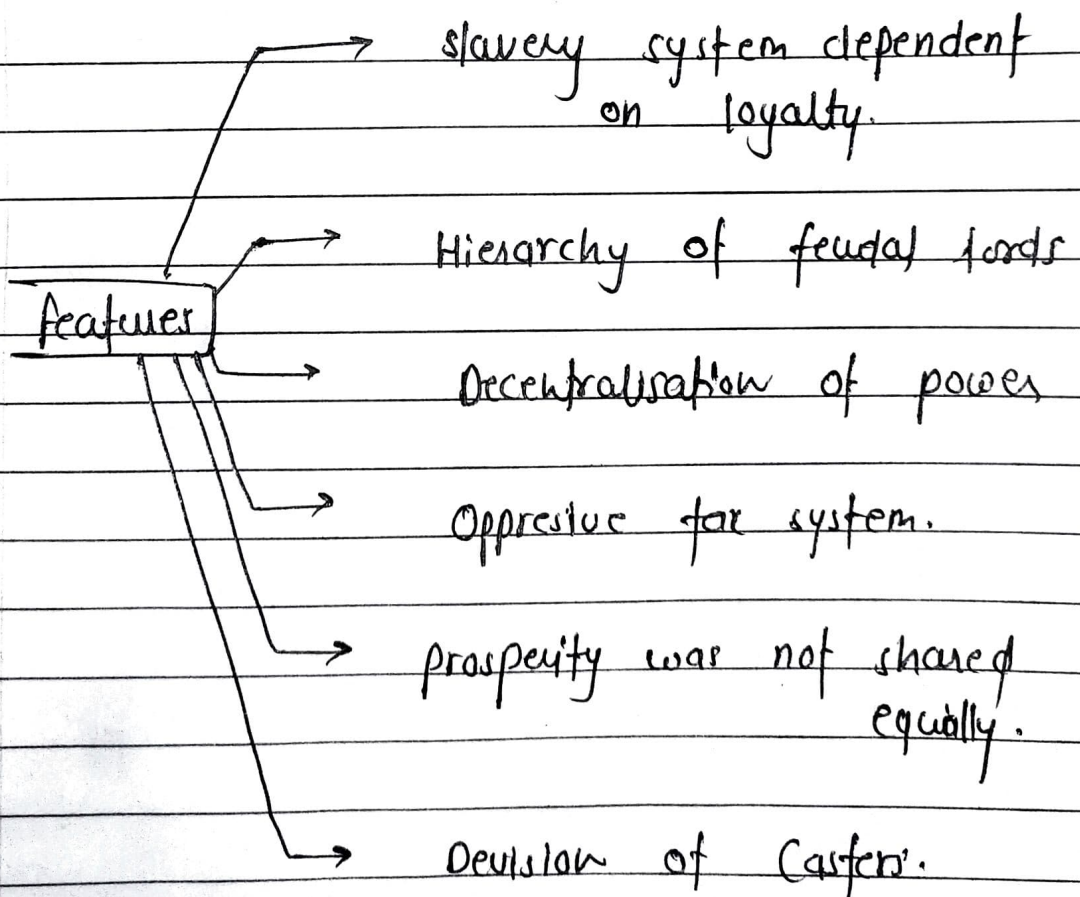 slavery system dependent
on loyalty.
Hierarchy of feudal lords
features
Decentralisation of power
Oppresive tax system.
prosperity was not shared
equally.
Devision of Casters.